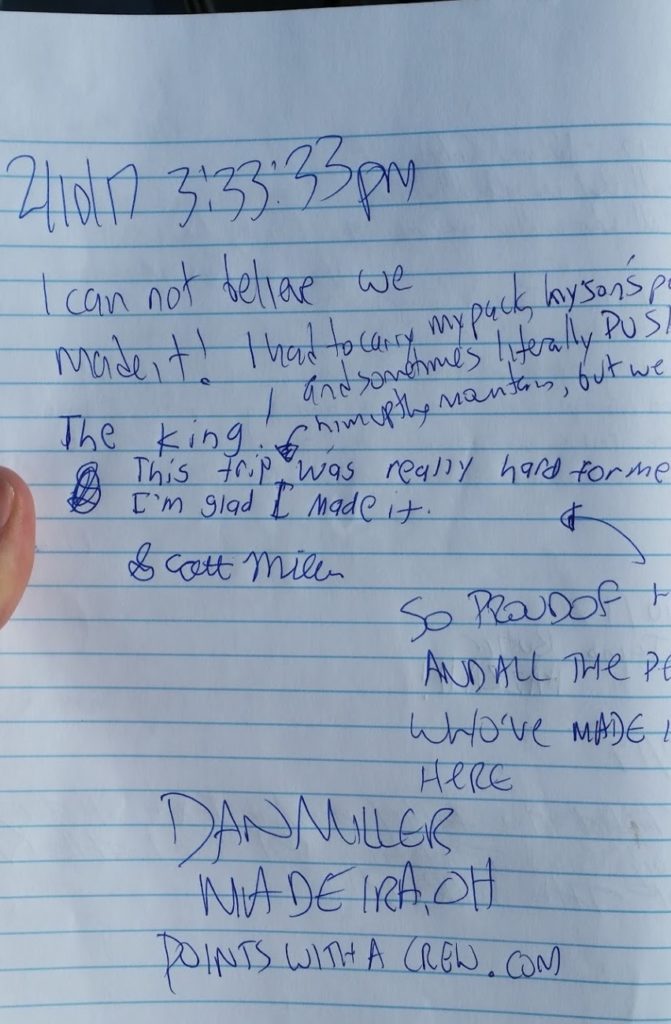 2/10/17 3:33:33pm
I can not believe we
made it! I had to carry my pack, my son's
and sometimes literally
him up the mountain, but we
The king!
This trip was really hard for me
I'm glad I made it.
Scott Miller
SO PROUD OF
AND ALL THE
WHO'VE MADE
HERE
DAN MILLER
MADEIRA, OH
POINTS WITH A CREW.COM